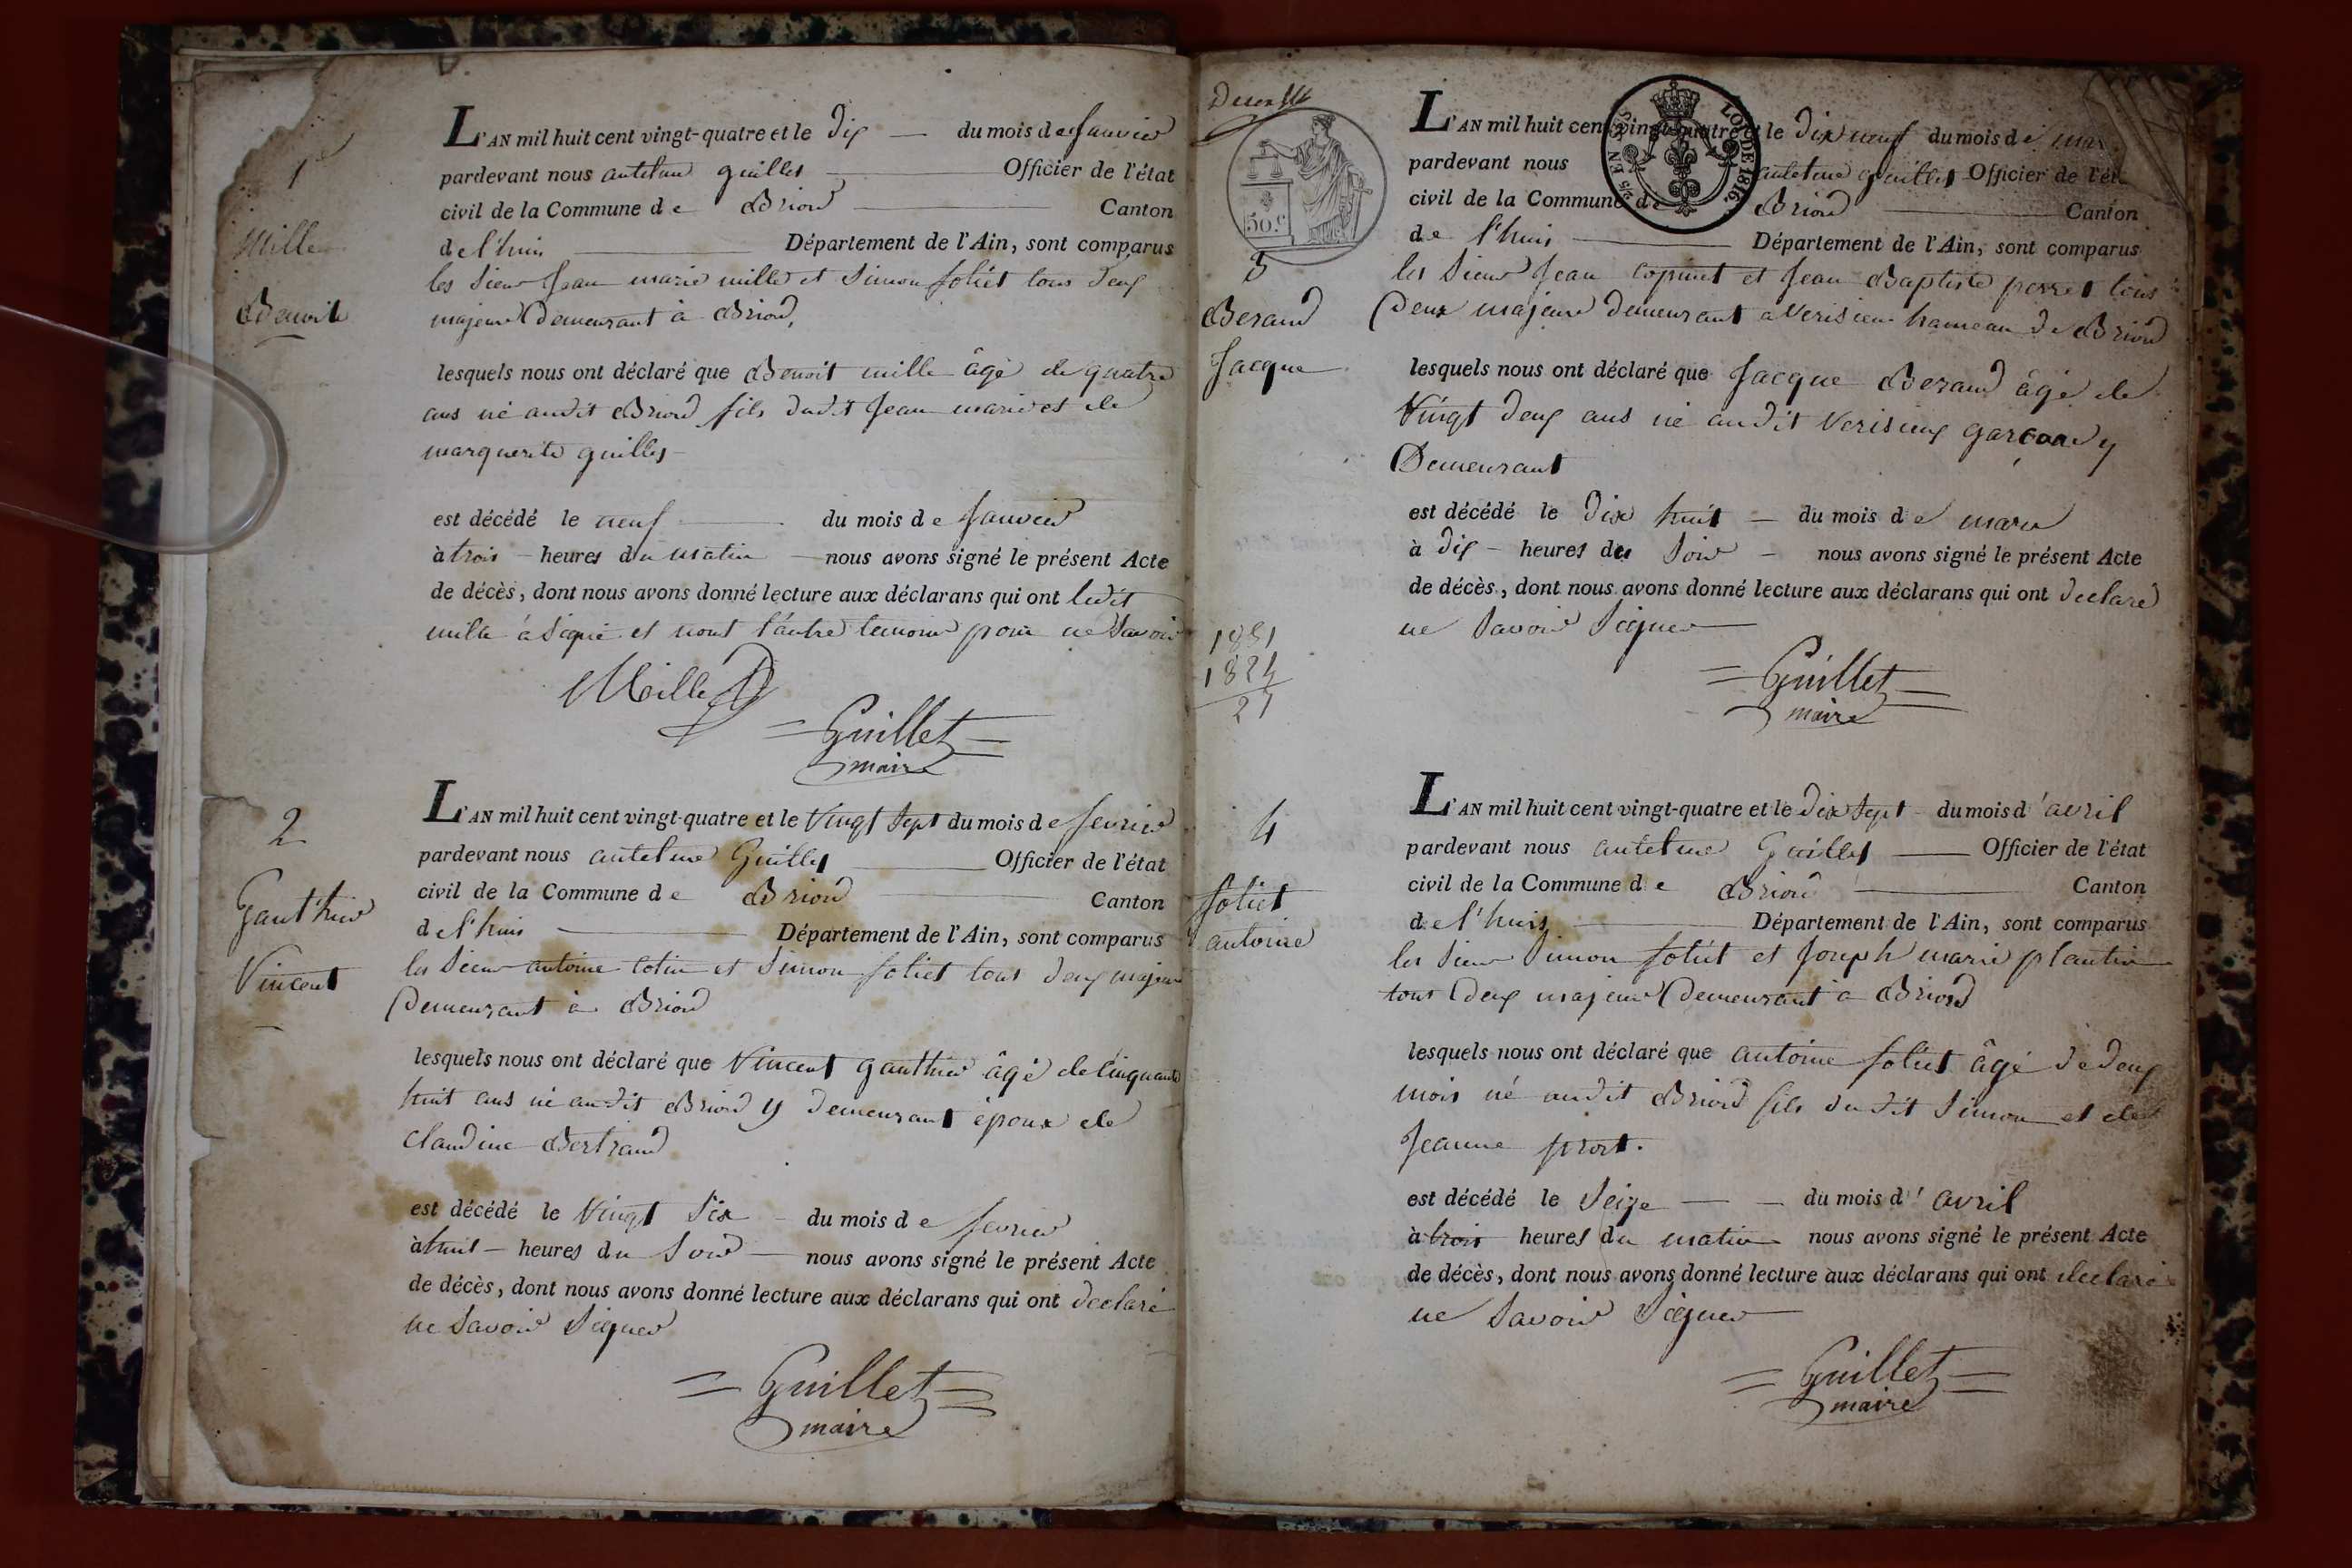 1
Mille
Benoit
L'AN mil huit cent vingt-quatre et le dix du mois de Janvier
pardevant nous antelme guillet Officier de l'état
civil de la Commune de Briord Canton
de l'huis Département de l'Ain, sont comparus
les Sieur Jean marie mille et Simon foliet tous deux
majeur Demeurant à Briord,
lesquels nous ont déclaré que Benoit mille âgé de quatre
ans né audit Briord fils dudit Jean marie et de
marguerite guillet
est décédé le neuf du mois de Janvier
à trois heures du matin nous avons signé le présent Acte
de décès, dont nous avons donné lecture aux déclarans qui ont ledit
mille a signé et nont l'autre temoin pour ne Savoir
Mille
Guillet
maire
2
Gauthier
Vincent
L'AN mil huit cent vingt-quatre et le Vingt Sept du mois de fevrier
pardevant nous antelme Guillet Officier de l'état
civil de la Commune de Briord Canton
de l'huis Département de l'Ain, sont comparus
les Sieur antoine cotin et Simon foliet tous deux majeur
Demeurant à Briord
lesquels nous ont déclaré que Vincent gauthier âgé de Cinquante
huit ans né audit Briord y demeurant époux de
claudine Bertrand
est décédé le Vingt Six du mois de fevrier
à huit heures du Soir nous avons signé le présent Acte
de décès, dont nous avons donné lecture aux déclarans qui ont declaré
ne Savoir Signer
Guillet
maire
50.C
3
Beraud
Jacque
1851
1824
27
L'AN mil huit cent vingt-quatre et le Dix neuf du mois de
LOI DE 1816.
pardevant nous antelme guillet Officier de l'état
civil de la Commune de Briord Canton
de l'huis Département de l'Ain, sont comparus
les Sieur Jean copinet et Jean Baptiste perret tous
Deux majeur Demeurant a Verisieux hameau de Briord
lesquels nous ont déclaré que Jacque Beraud âgé de
Vingt deux ans né audit Verisieux garcon y
Demeurant
est décédé le Dix huit du mois de mars
à dix heures du Soir nous avons signé le présent Acte
de décès, dont nous avons donné lecture aux déclarans qui ont declaré
ne Savoir Signer
Guillet
maire
4
foliet
antoine
L'AN mil huit cent vingt-quatre et le Dix Sept du mois d'avril
pardevant nous antelme Guillet Officier de l'état
civil de la Commune de Briord Canton
de l'huis Département de l'Ain, sont comparus
les Sieur Simon foliet et Joseph marie plantin
tous deux majeur Demeurant à Briord
lesquels nous ont déclaré que antoine foliet âgé de deux
mois né audit Briord fils dudit Simon et de
Jeanne prost.
est décédé le Seize du mois d'avril
à trois heures du matin nous avons signé le présent Acte
de décès, dont nous avons donné lecture aux déclarans qui ont declaré
ne Savoir Signer
Guillet
maire